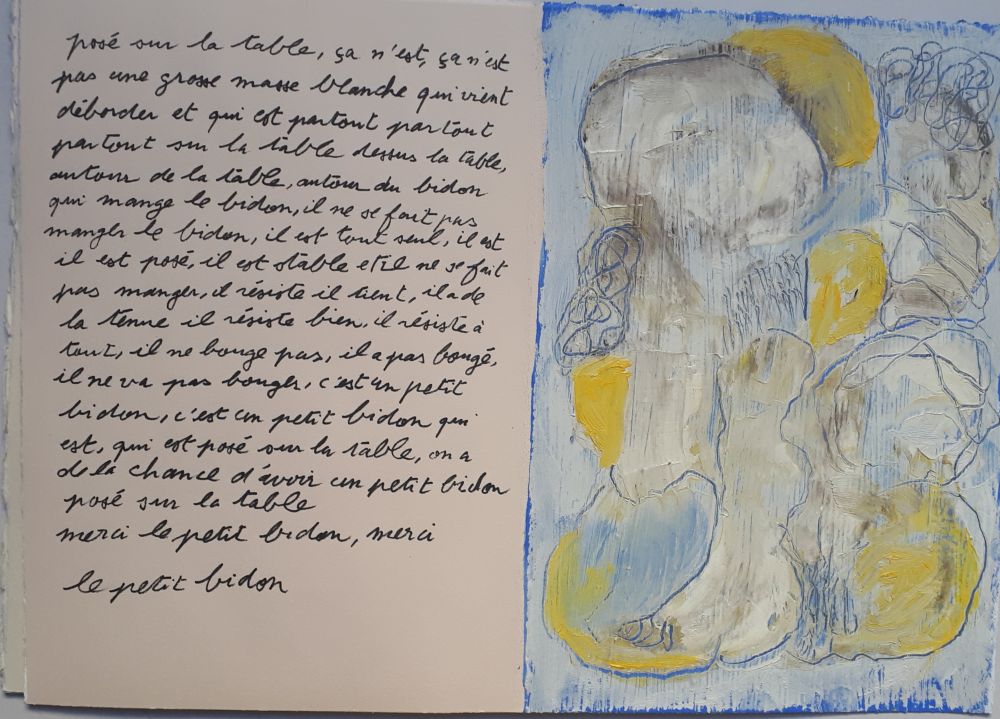 posé sur la table, ça n'est, ça n'est
pas une grosse masse blanche qui vient
déborder et qui est partout partout
partout sur la table dessus la table,
autour de la table, autour du bidon
qui mange le bidon, il ne se fait pas
manger le bidon, il est tout seul, il est
il est posé, il est stable et il ne se fait
pas manger, il résiste il tient, il a de
la tenue il résiste bien, il résiste à
tout, il ne bouge pas, il a pas bougé,
il ne va pas bouger, c'est un petit
bidon, c'est un petit bidon qui
est, qui est posé sur la table, on a
de la chance d'avoir un petit bidon
posé sur la table
merci le petit bidon, merci
le petit bidon